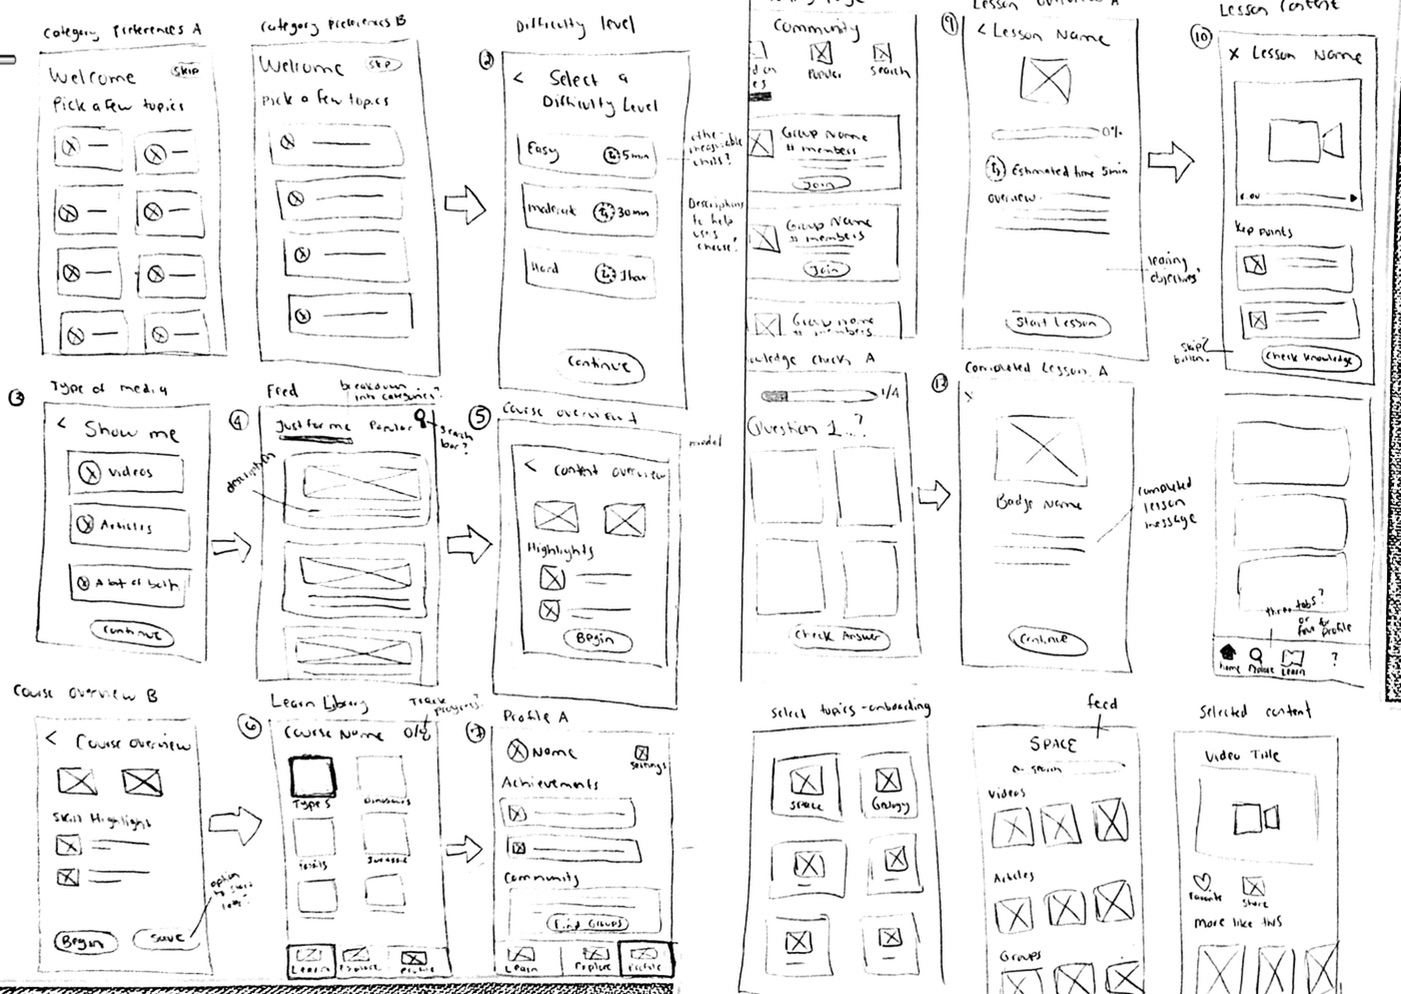 Category Preferences A
Welcome
Skip
Pick a few topics
Category Preferences B
Welcome
Skip
Pick a few topics
Difficulty level
2
< Select a
Difficulty Level
Easy
5min
moderate
30min
Hard
1 hour
Continue
Descriptions
to help
users
choose?
Community
Popular
Search
Group Name
# members
Join
Group Name
# members
Join
Group Name
# members
9
Lesson Overview A
< Lesson Name
0%
Estimated time 5min
overview
learning
objectives?
Start Lesson
Lesson Content
10
X Lesson Name
Key points
skip?
button?
Check Knowledge
3
Type of media
< Show me
Videos
Articles
A bit of both
Continue
4
Feed
breakdown
into categories?
Just for me
Popular
search
bar?
description
5
Course overview
< Content overview
Highlights
Begin
model
Knowledge check A
1/4
Question 1...?
Check Answer
Completed Lesson A
X
Badge Name
completed
lesson
message
Continue
three tabs?
or
four for
profile
Home
Explore
Learn
?
Course overview B
< Course overview
Skill Highlight
Begin
Save
option
to start
later
6
Learn Library
Track
progress?
Course Name
Types
Dinosaurs
Fossils
Jurassic
Learn
Explore
Profile
7
Profile A
Name
Settings
Achievements
Community
Find Groups
Learn
Explore
Profile
Select topics - onboarding
SPACE
Geology
feed
SPACE
search
Videos
Articles
Groups
Selected content
Video Title
Favorite
Share
more like this